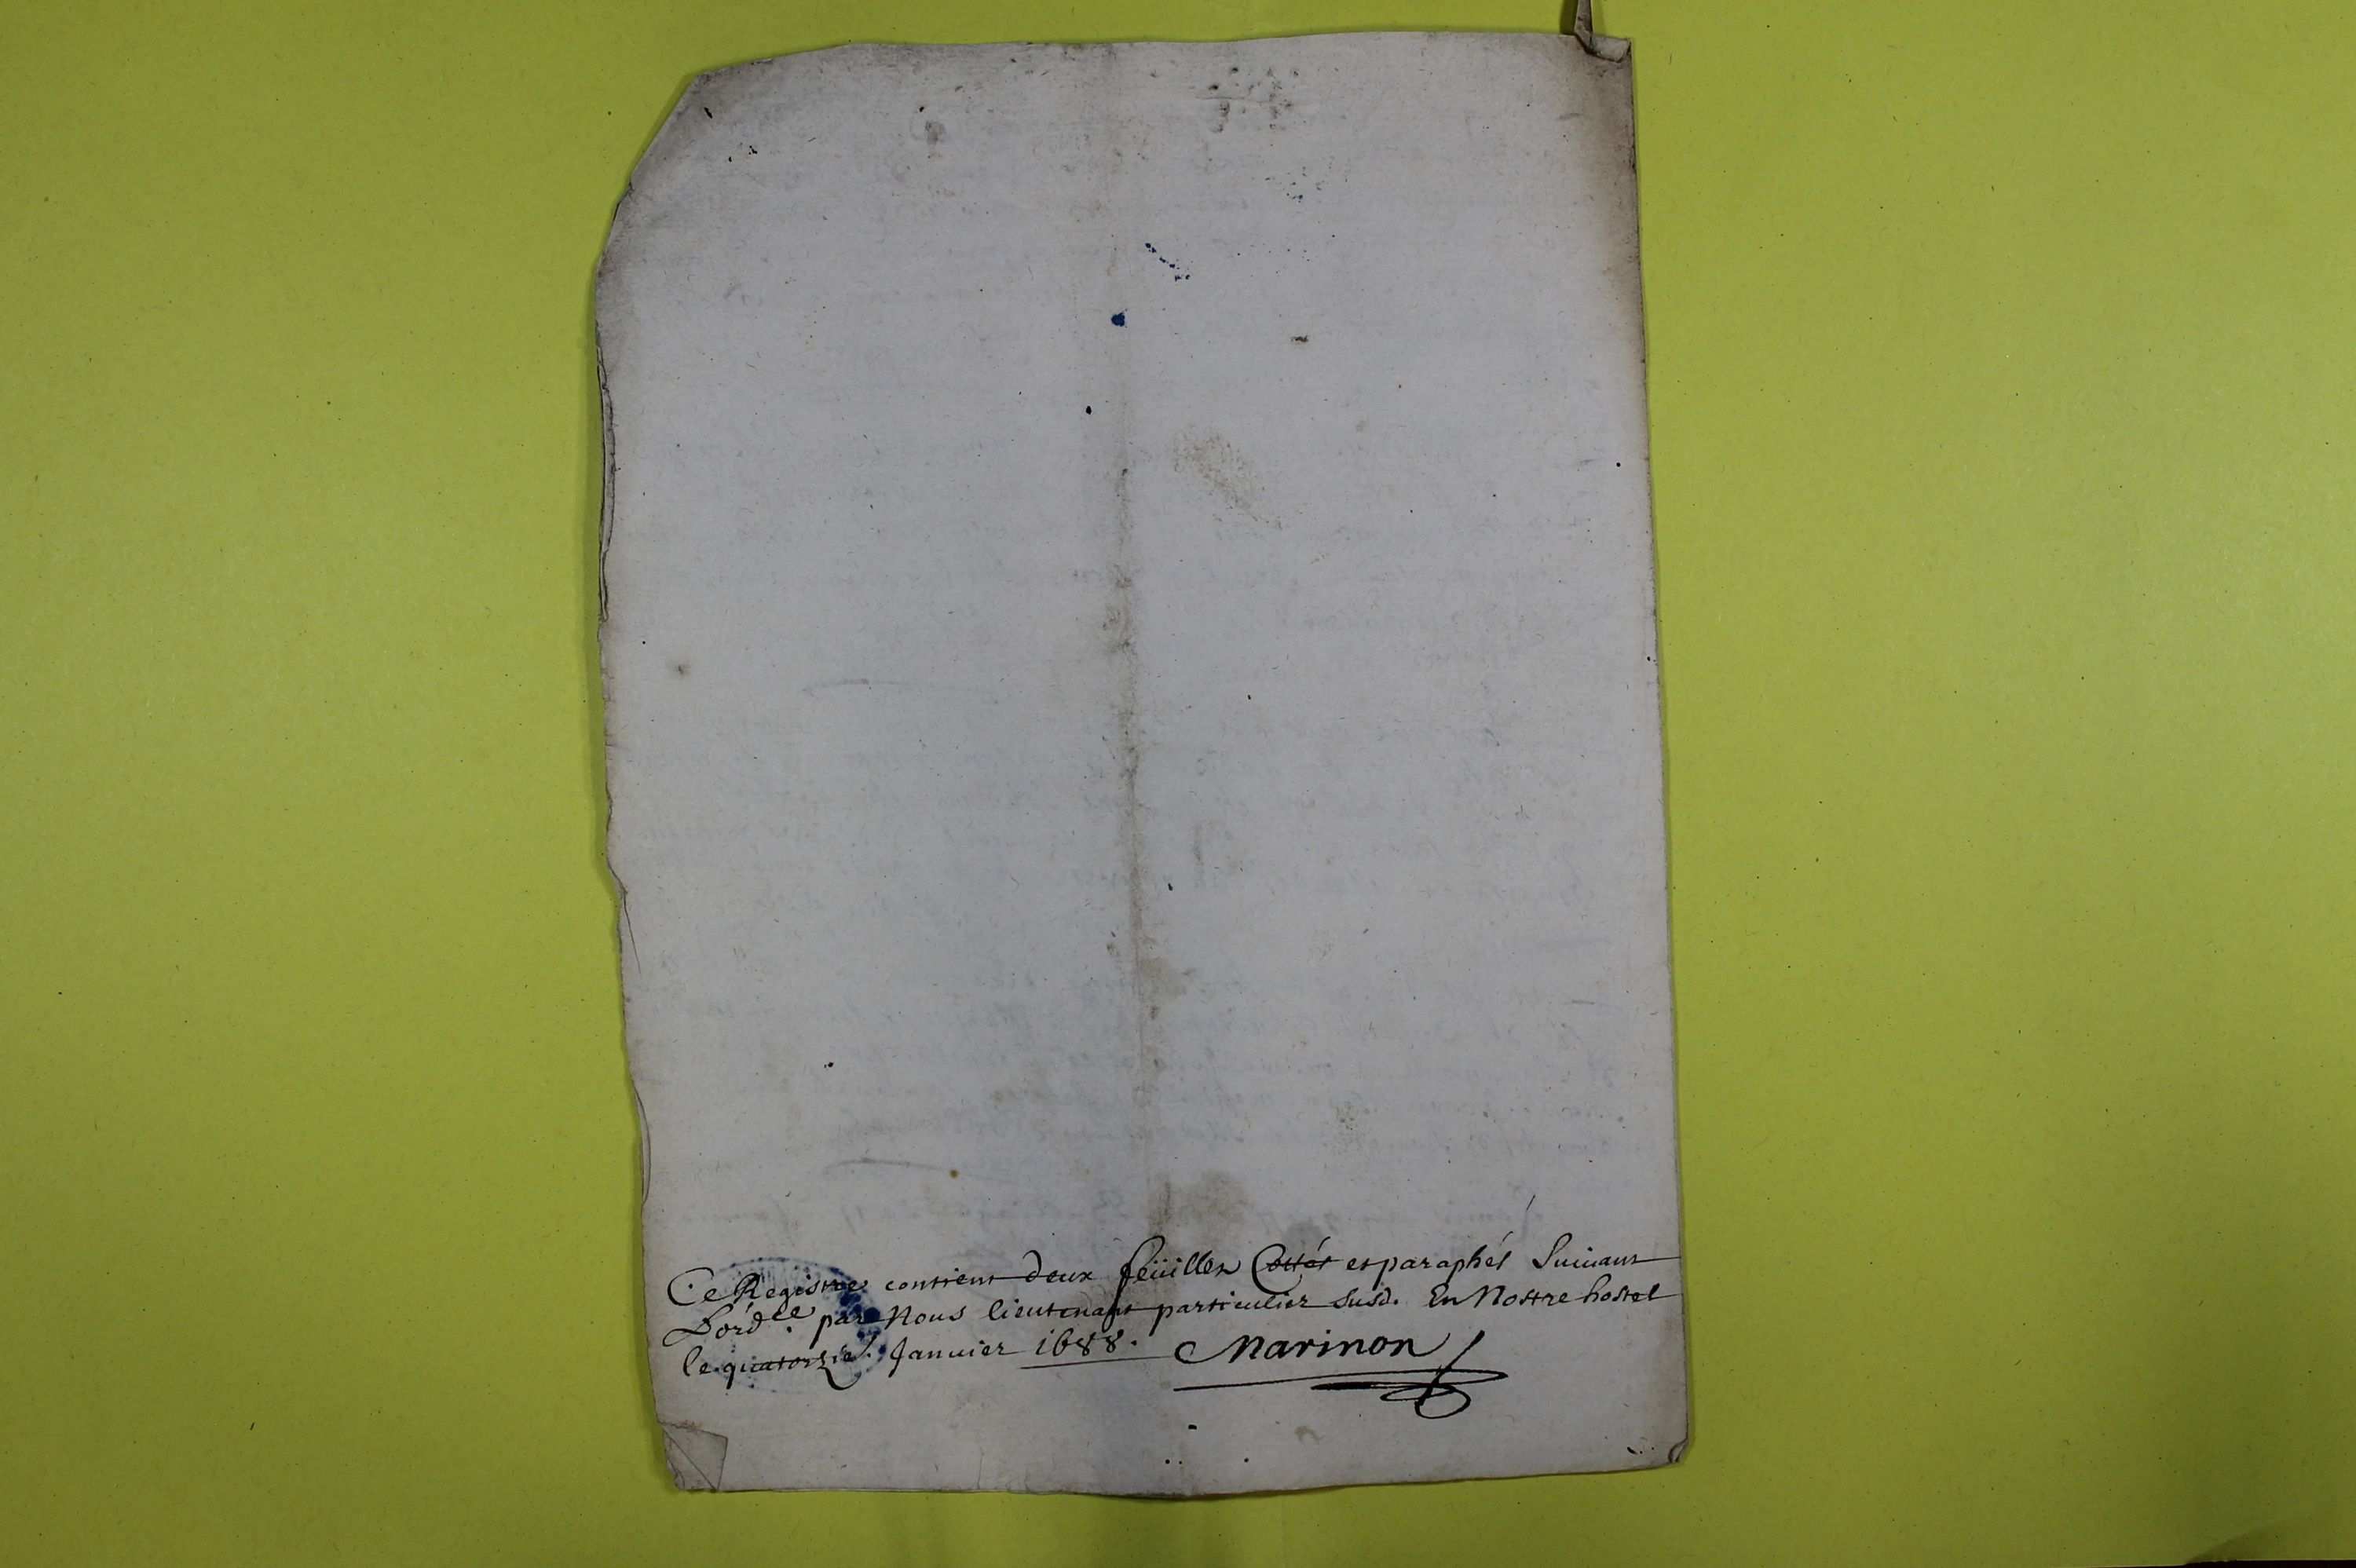 Ce Registre contient deux feüilles Cottés et paraphés Suiuant
L'ordce. par Nous lieutenant particulier susd. En Nostre hostel
le quatorzie. Januier 1688. Marinon